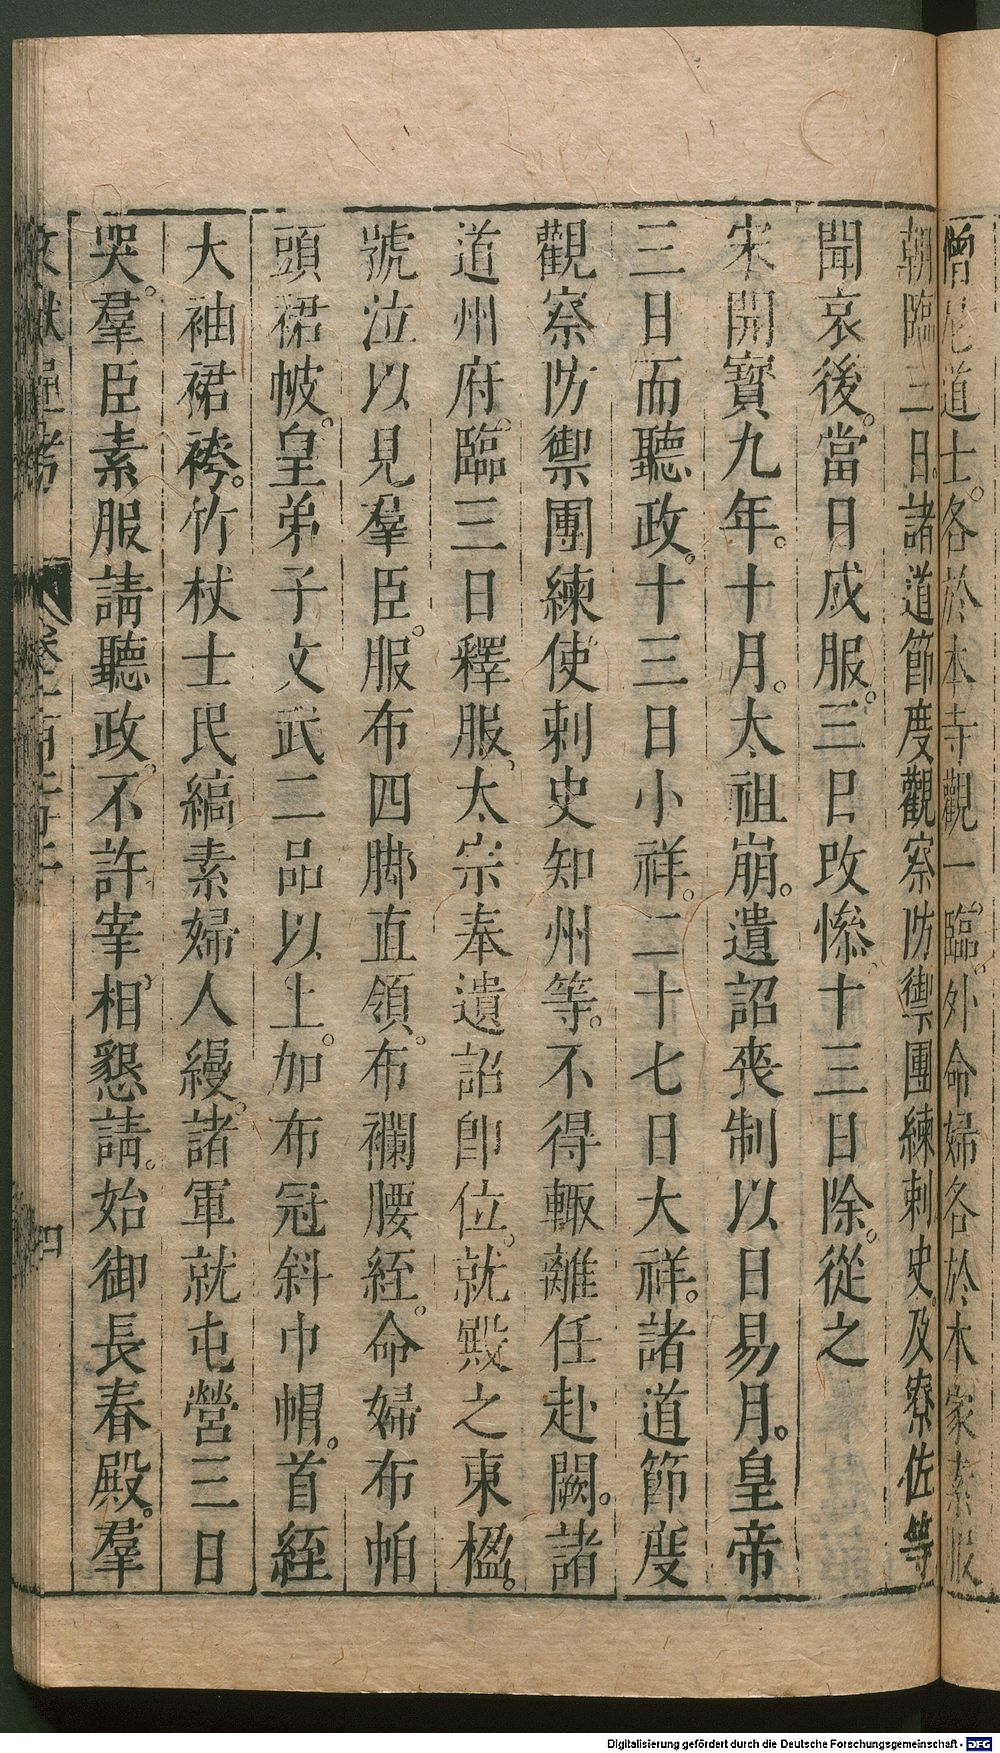 僧尼道士。各於本寺觀一臨。外命婦各於本家素服
朝臨三日。諸道節度觀察防禦團練刺史。及寮佐等
聞哀後。當日成服。三日改慘。十三日除。從之
宋開寶九年。十月。太祖崩。遺詔喪制以日易月。皇帝
三日而聽政。十三日小祥。二十七日大祥。諸道節度
觀察防禦團練使刺史知州等。不得輙離任赴闕。諸
道州府。臨三日釋服。太宗奉遺詔卽位。就殿之東楹。
號泣以見羣臣。服布四脚直領。布襴腰絰。命婦布帕
頭裙帔。皇弟子文武二品以上。加布冠斜巾帽。首絰
大袖裙袴。竹杖士民縞素婦人縵。諸軍就屯營三日
哭。羣臣素服請聽政。不許宰相懇請。始御長春殿。羣
文獻通考
四
Digitalisierung gefördert durch die Deutsche Forschungsgemeinschaft - DFG